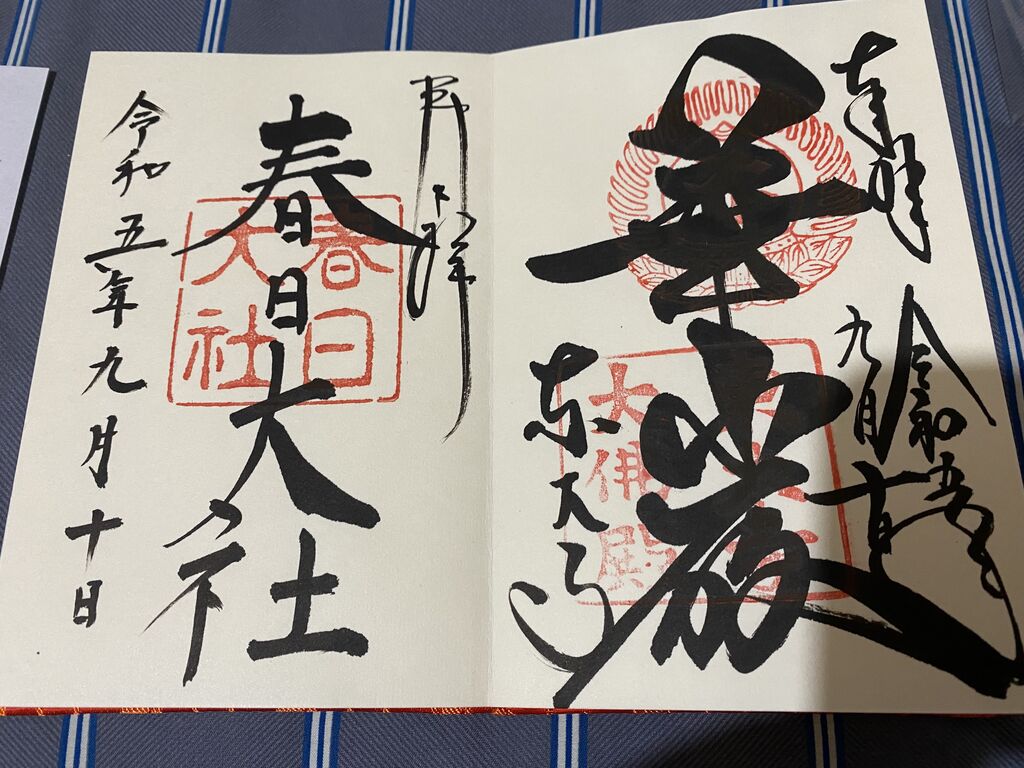 奉拝
令和五年
九月十日
華厳
東大寺
大佛殿
奉拝
春日大社
春日
大社
令和五年九月十日